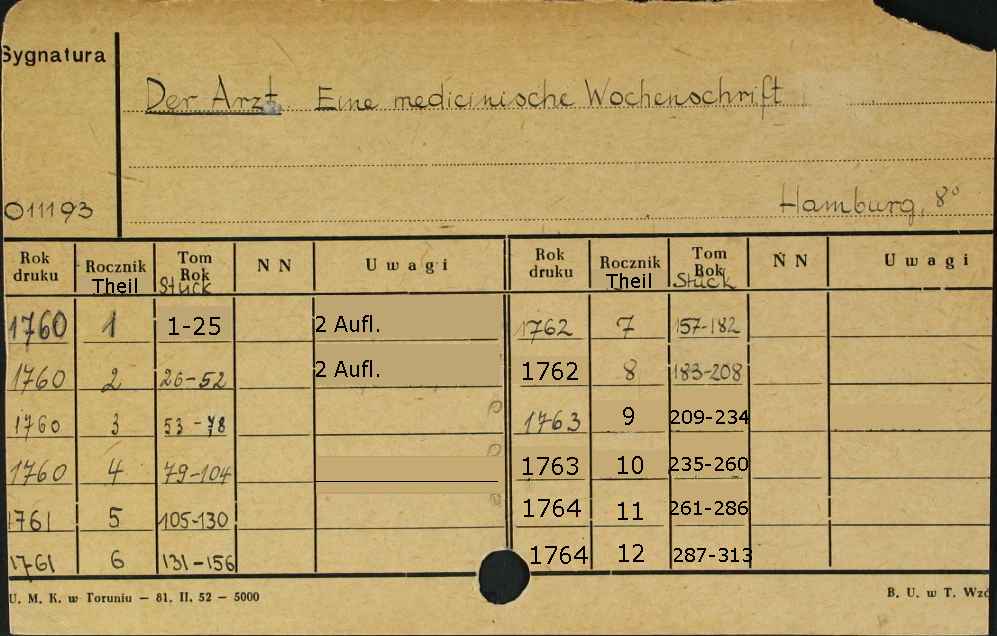 Sygnatura
Der Arzt Eine medicinische Wochenschrift
011193
Hamburg, 8°
Rok druku Rocznik Theil Tom Rok Stück N N Uwagi Rok druku Rocznik Theil Tom Rok Stück N N Uwagi
1760 1 1-25 2 Aufl. 1762 7 157-182
1760 2 26-52 2 Aufl. 1762 8 183-208
1760 3 53-78 1763 9 209-234
1760 4 79-104 1763 10 235-260
1761 5 105-130 1764 11 261-286
1761 6 131-156 1764 12 287-313
U. M. K. w Toruniu — 81. II. 52 — 5000
B. U. w T. Wzó